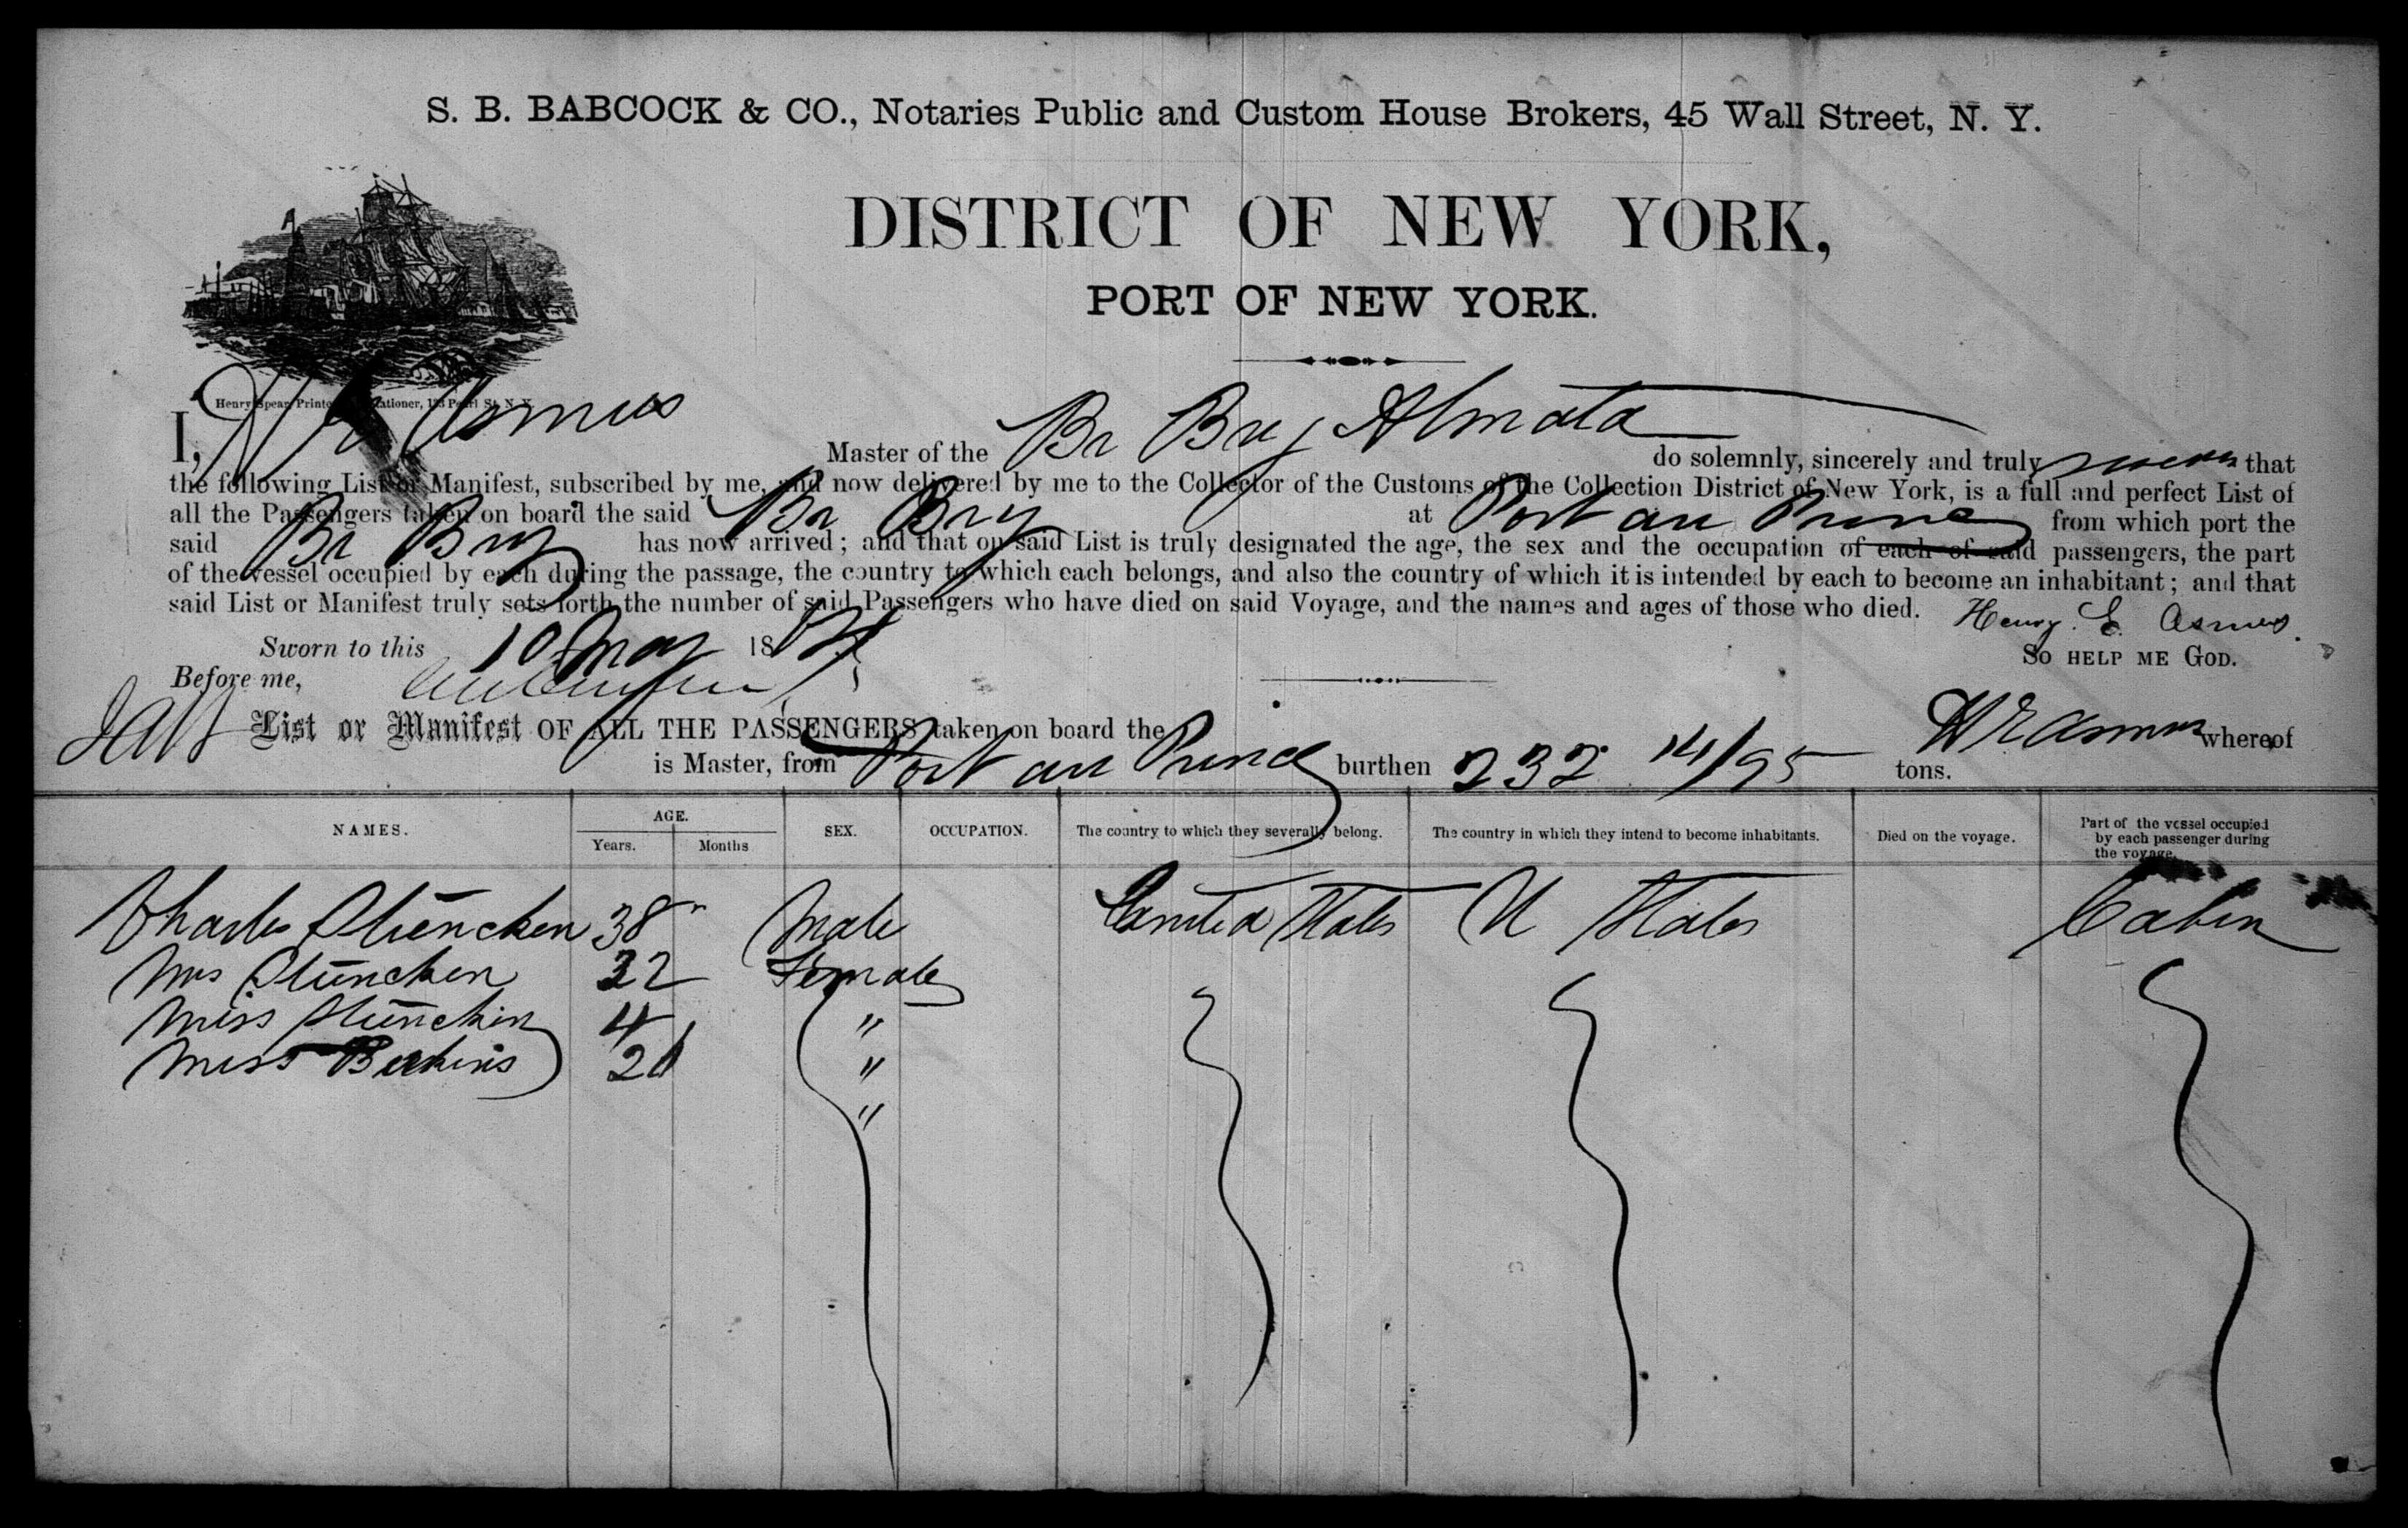 S. B. BABCOCK & CO., Notaries Public and Custom House Brokers, 45 Wall Street, N. Y.
DISTRICT OF NEW YORK,
PORT OF NEW YORK.
Henry Spear, Printer Stationer, Pearl St. N. Y.
I, H E Asmus Master of the Br Brig Almata do solemnly, sincerely and truly swear that
the following List or Manifest, subscribed by me, and now delivered by me to the Collector of the Customs of the Collection District of New York, is a full and perfect List of
all the Passengers taken on board the said Br Brig at Port au Prince from which port the
said Br Brig has now arrived; and that on said List is truly designated the age, the sex and the occupation of each of said passengers, the part
of the vessel occupied by each during the passage, the country to which each belongs, and also the country of which it is intended by each to become an inhabitant; and that
said List or Manifest truly sets forth the number of said Passengers who have died on said Voyage, and the names and ages of those who died. Henry E. Asmus.
Sworn to this 10 May 18 SO HELP ME GOD.
Before me,
List or Manifest OF ALL THE PASSENGERS taken on board the H E Asmus whereof
is Master, from Port au Prince burthen 232 14/95 tons.
NAMES. AGE. SEX. OCCUPATION. The country to which they severally belong. The country in which they intend to become inhabitants. Died on the voyage. Part of the vessel occupied by each passenger during the voyage.
Years. Months
Charles Stüncken 38 Male United States U States Cabin
Mrs Stüncken 32 Female
Miss Stüncken 4 "
Miss 20 "
"